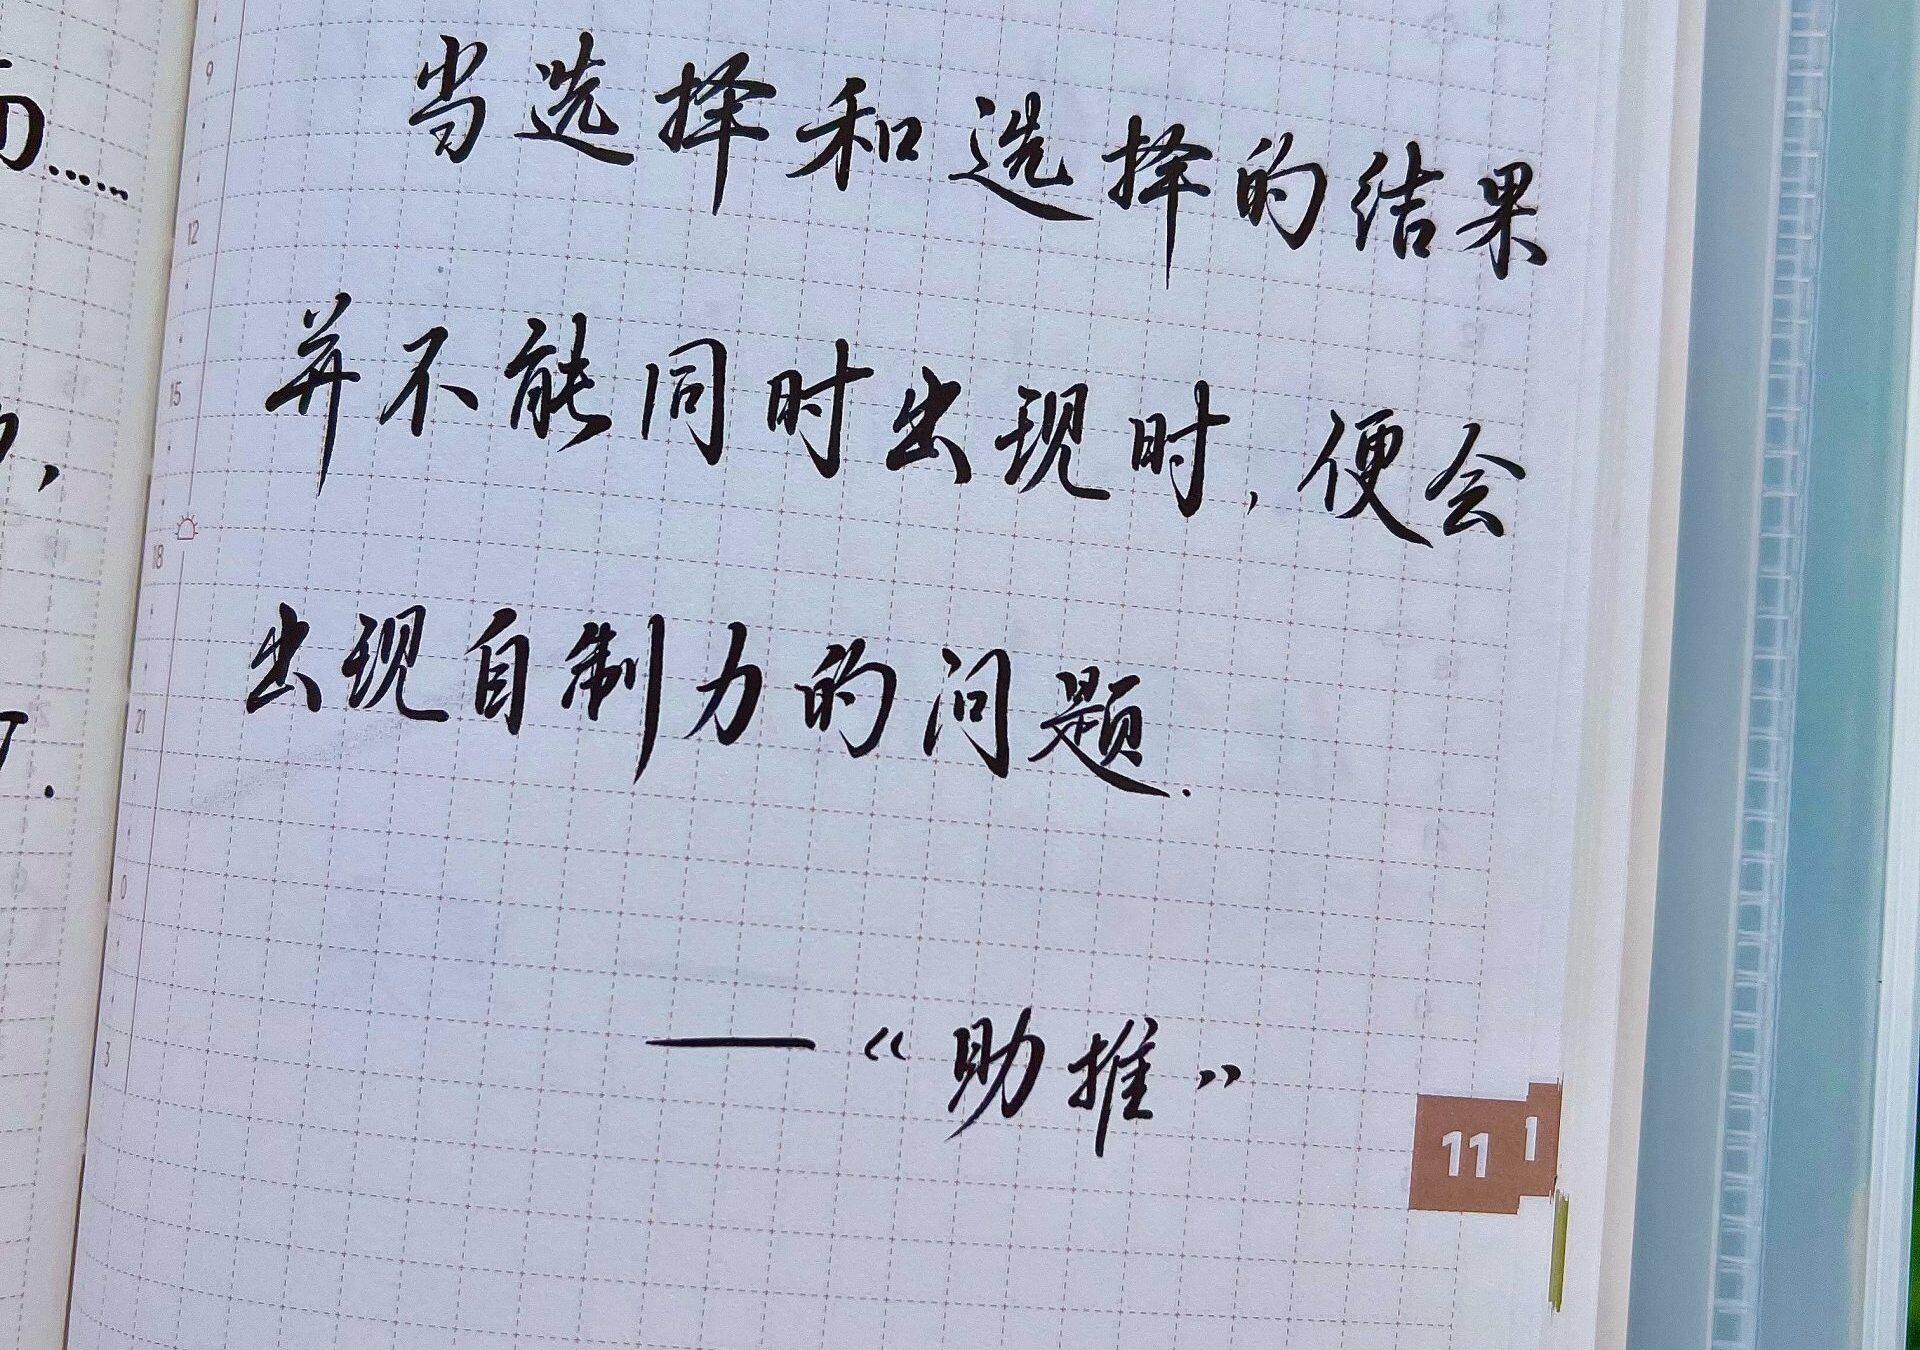 当选择和选择的结果
并不能同时出现时,便会
出现自制力的问题.
—《助推》
9
12
15
18
21
0
3
11
1